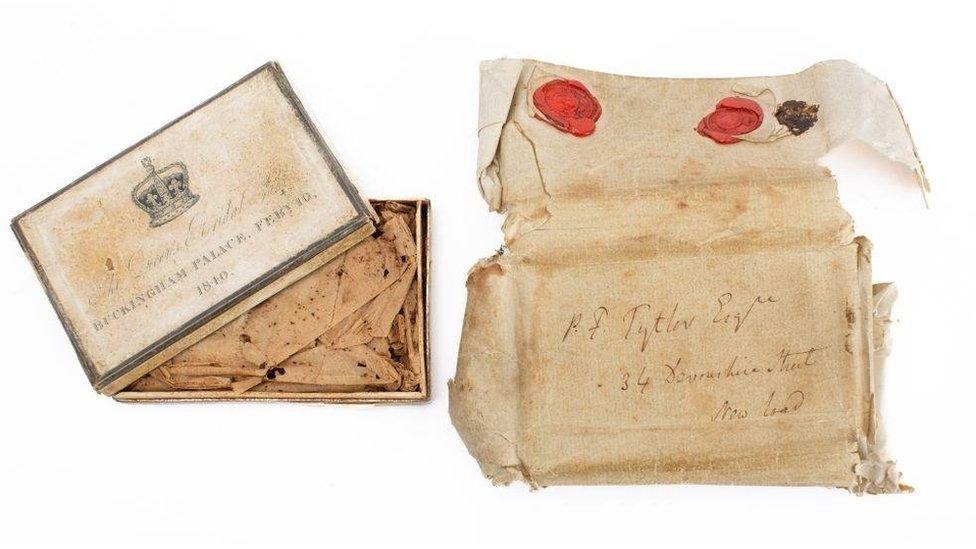 The Queen's Bridal Cake
BUCKINGHAM PALACE, FEBY. 10,
1840.
P. F. Tytler Esqre
34 Devonshire Street
New Road